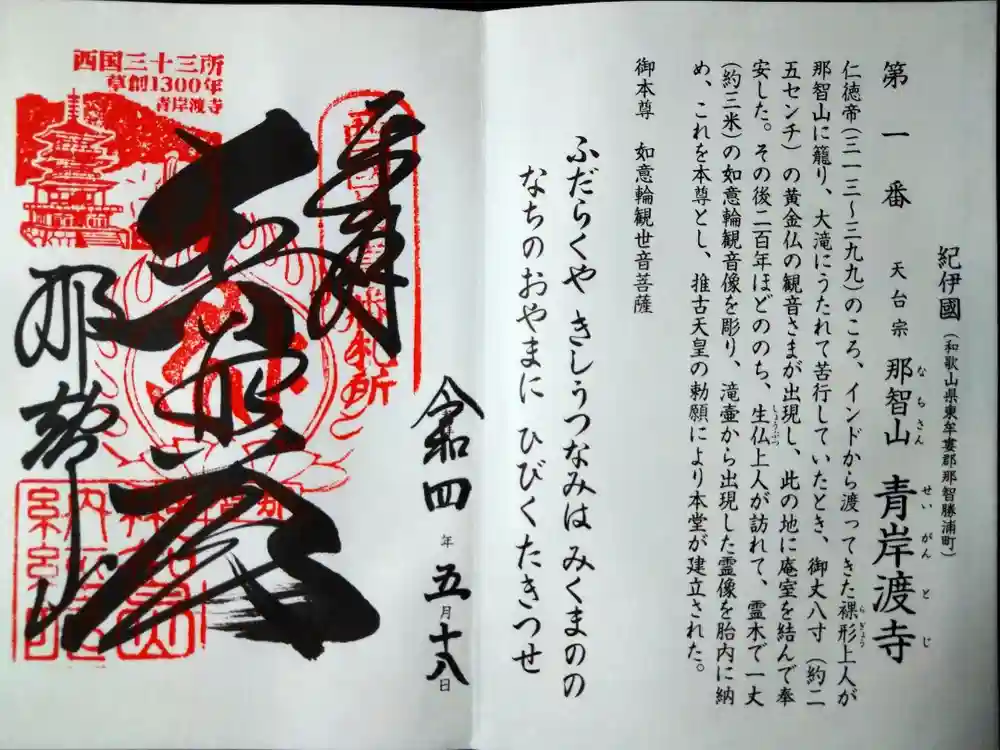 紀伊國(和歌山県東牟婁郡那智勝浦町)
第一番 天台宗 那智山 青岸渡寺
なちさん せいがんとじ
仁徳帝(三一三~三九九)のころ、インドから渡ってきた裸形上人が
らぎょう
那智山に籠り、大滝にうたれて苦行していたとき、御丈八寸(約二
五センチ)の黄金仏の観音さまが出現し、此の地に庵室を結んで奉
安した。その後二百年ほどののち、生仏上人が訪れて、霊木で一丈
しょうぶつ
(約三米)の如意輪観音像を彫り、滝壷から出現した霊像を胎内に納
め、これを本尊とし、推古天皇の勅願により本堂が建立された。
御本尊 如意輪観世音菩薩
ふだらくや きしうつなみは みくまのの
なちのおやまに ひびくたきつせ
西国三十三所
草創1300年
青岸渡寺
奉拝
那智山
令和四年五月十八日